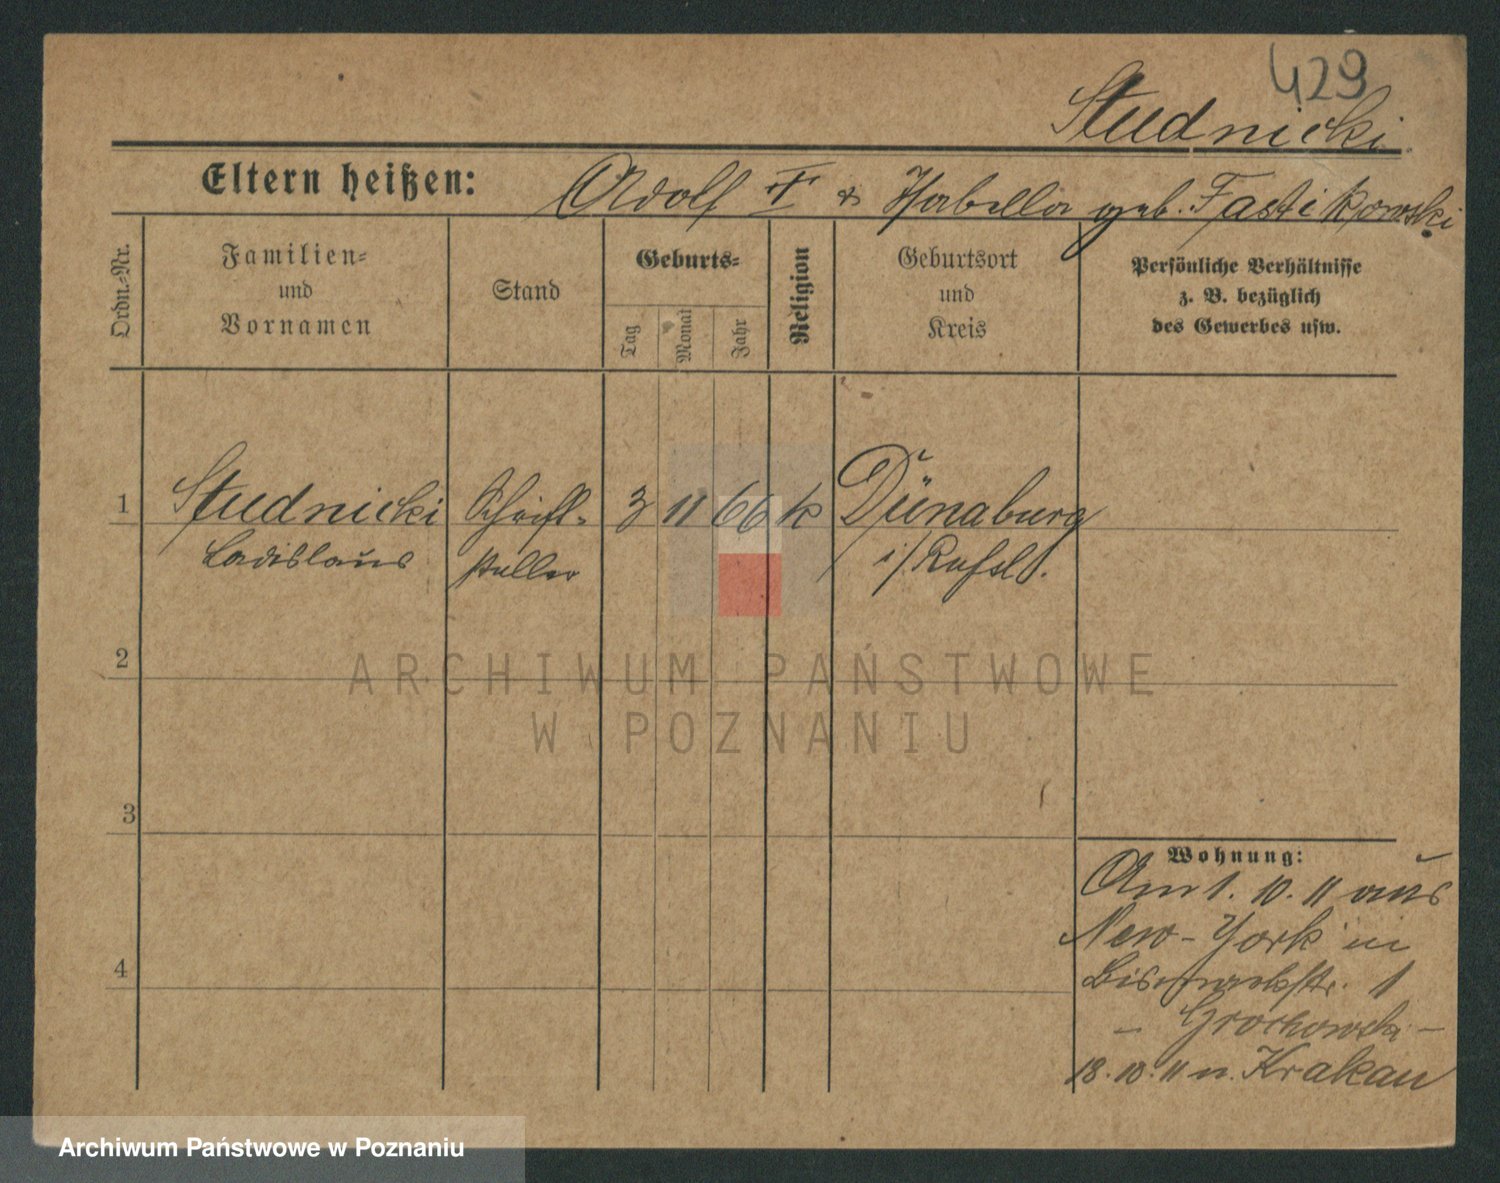 429
Studnicki
Eltern heißen: Adolf † & Isabella geb. Fastikowski
Ordn.-Nr.
Familien-
und
Vornamen
Stand
Geburts-
Tag
Monat
Jahr
Religion
Geburtsort
und
Kreis
Persönliche Verhältnisse
z. B. bezüglich
des Gewerbes usw.
1 Studnicki Schrift- 3 11 66 k Dünaburg
Ladislaus steller i/Russl.
2
ARCHIWUM PAŃSTWOWE
W POZNANIU
3
Wohnung:
Am 1. 10. 11 aus
New-York in
Bismarckstr. 1
- Grochowski -
4
18. 10. 11 n. Krakau
Archiwum Państwowe w Poznaniu